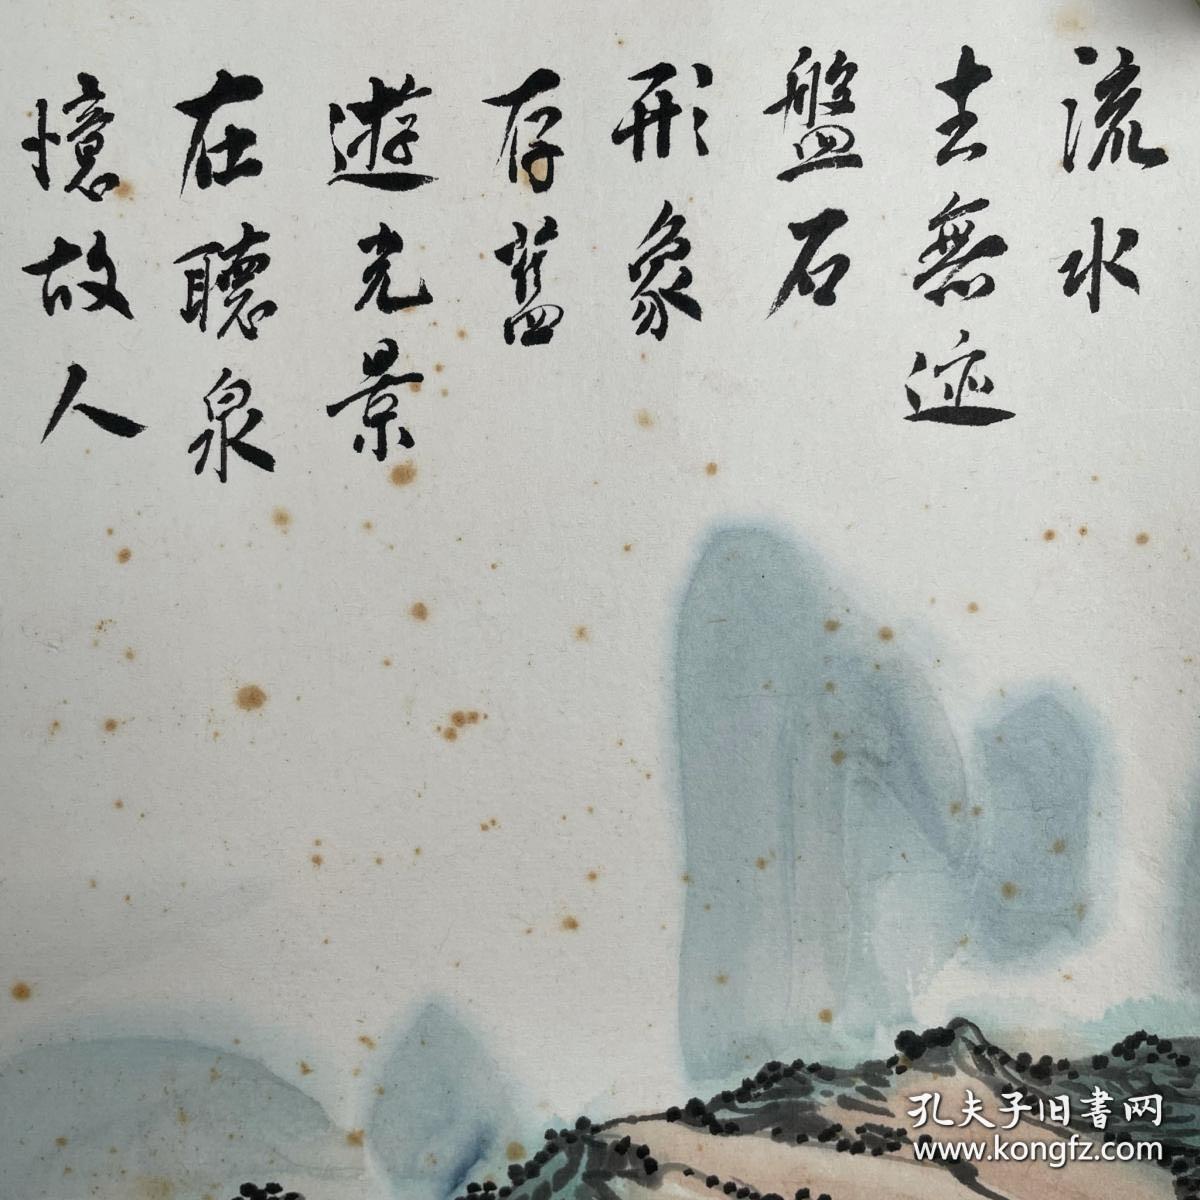 流水
去無迹
盤石
形象
存舊
遊光景
在聽泉
憶故人
孔夫子旧書网
www.kongfz.com